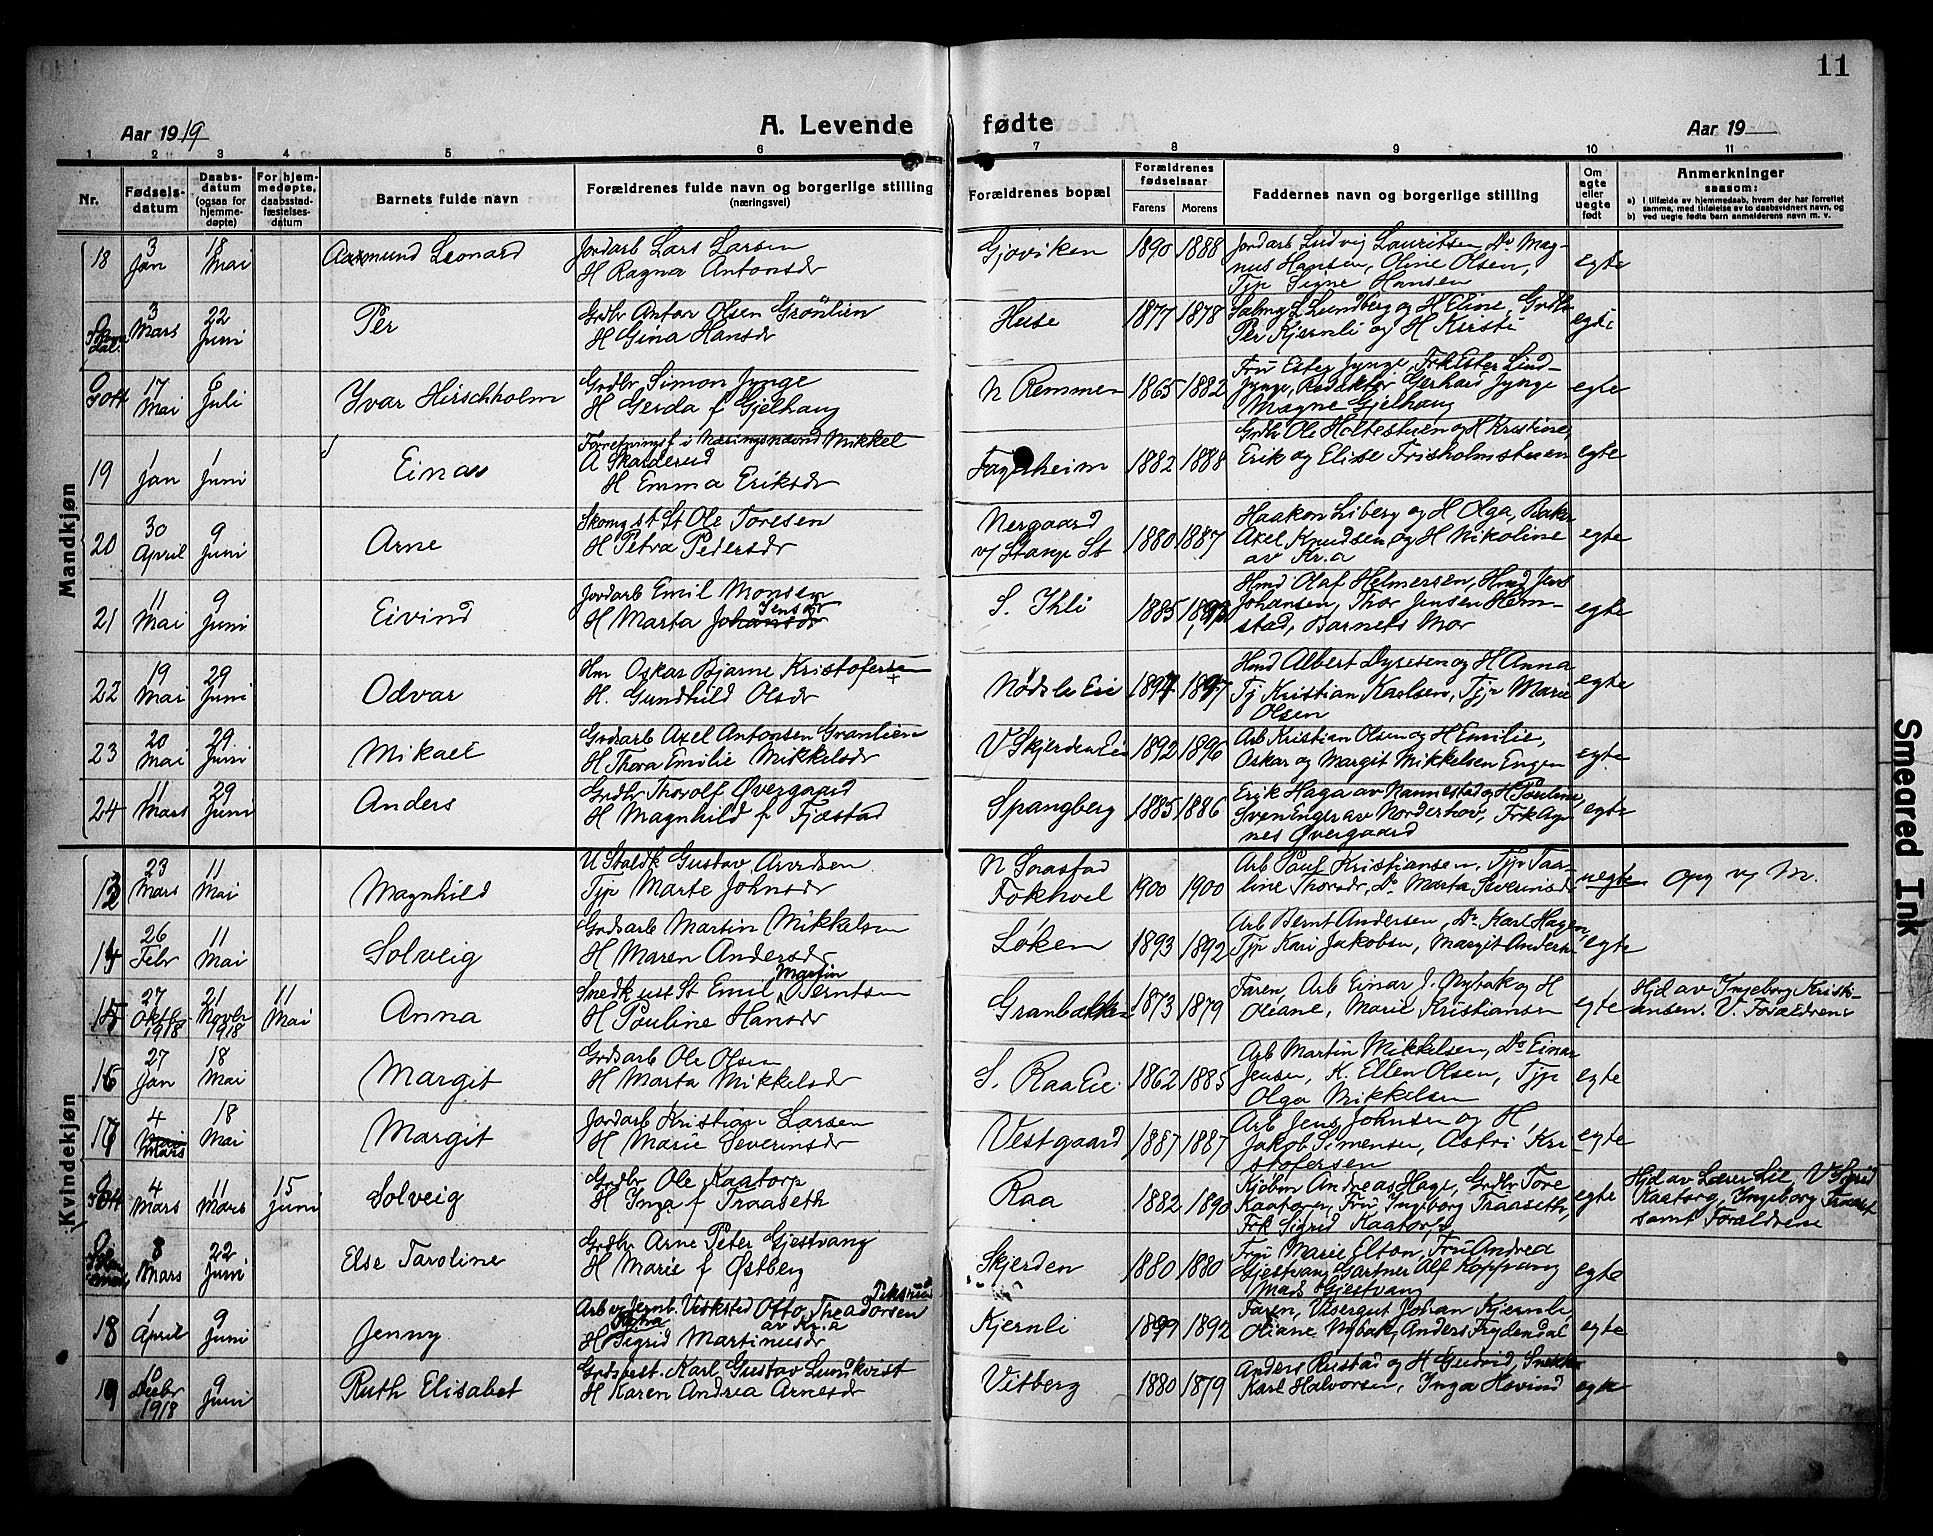 11
Aar 1919
A. Levende fødte
Aar 19
1 2 3 4 5 6 7 8 9 10 11
Nr.
Fødsels-
datum
Daabs-
datum
(ogsaa for
hjemme-
døpte)
For hjem-
medøpte,
daabsstad-
fæstelses-
datum
Barnets fulde navn
Forældrenes fulde navn og borgerlige stilling
(næringsvei)
Forældrenes bopæl
Forældrenes
fødselsaar
Farens Morens
Faddernes navn og borgerlige stilling
Om
egte
eller
uegte
født
Anmerkninger
saasom:
a) i tilfælde av hjemmedaab, hvem der har forrettet
samme, med tilføielse av to daabsvidners navn, og
b) ved uegte fødte barn anmelderens navn m. v.
Mandkjøn
18
3
Jan
18
Mai
Aasmund Leonard
Jordarb Lars Larsen
H Ragna Antonsdr
Gjøviken
1890 1888
Jordarb Ludvig Lauritsen, Do Mag-
nus Hansen, Oline Olsen,
Tjp Signe Hansen
egte
3
Mars
22
Juni
Per
Grdbr Anton Olsen Grønlien
H Gina Hansdr
1877 1878
Lundberg og H Eline, Grdbr
Per Kjernli og H Kirsti
egte
Gott
17
Mai
6
Juli
Yvar Hirschholm
Grdbr Simon Jynge
H Gerda f Gjelhaug
N Remmen
1865 1882
Fru Ester Jynge, Frk Ester Lind-
Jynge, Redaktør Gerhard Jynge
Magne Gjelhaug
egte
19
1
Jan
1
Juni
Einar
Forretningsf. i Næringsnævnd Mikkel
A Skarderud
H Emma Eriksdr
Fagerheim
1882 1888
Grdbr Ole Holtestuen og H Kristine,
Erik og Elise Frisholmstuen
egte
20
30
April
9
Juni
Arne
Skomg st St Ole Toresen
H Petra Pedersdr
Nergaard
v/ Stange St
1880 1887
Haakon Liberg og H Olga, Baker
Axel Knudsen og H Nikoline
av Kr.a
egte
21
11
Mai
9
Juni
Eivind
Jordarb Emil Monsen
Jensdr
H Marta Johansdr
S. Ihli
1885 1893
Hmd Olaf Helmersen, Hmd Jens
Johansen, Thor Jensen Hem-
stad, Barnets Mor
egte
22
19
Mai
29
Juni
Odvar
Hm Oskar Bjarne Kristofersen
H. Gundhild Olsdr
Nødsle Eie
1897 1897
Hmd Albert Dyresen og H Anna
Tj Kristian Karlsen, Tjp Marie
Olsen
egte
23
20
Mai
29
Juni
Mikael
Grdsarb Axel Antonsen Granlien
H Thora Emilie Mikkelsdr
V Skjerden Eie
1892 1896
Arb Kristian Olsen og H Emilie,
Oskar og Margit Mikkelsen Engen
egte
24
11
Mars
29
Juni
Anders
Grdbr Thorolf Øvergaard
H Magnhild f Fjæstad
Spangberg
1885 1886
Erik Haga av Nannestad og H Pauline,
Sven Enger av Norderhov, Frk Ag-
nes Øvergaard
egte
Kvindekjøn
13
23
Mars
11
Mai
Magnhild
U Staldk Gustav Arvesen
Tjp Marte Johnsdr
N Sraastad
Fokhvel
1900 1900
Arb Paul Kristiansen, Tjp Taar-
line Thorsdr, Do Marta Severinsdr
uegte
Opg v/ M.
14
26
Febr
11
Mai
Solveig
Grdsarb Martin Mikkelsen
H Maren Andersdr
Løken
1893 1892
Arb Bernt Andersen, Do Karl Hagen,
Tjp Kari Jakobsen, Margit Andersen
egte
15
27
Oktbr
1918
21
Novbr
1918
11
Mai
Anna
Martin
Snedk ust St Emil Berntsen
H Pauline Hansdr
Granbakken
1873 1879
Faren, Arb Einar J. Nybak og H
Oleane, Marie Kristiansen
egte
Hjd av Ingeborg Kristi-
ansen. V. Forældrene
16
27
Jan
18
Mai
Margit
Grdsarb Ole Olsen
H Marta Mikkelsdr
S. Raa Eie
1862 1885
Arb Martin Mikkelsen, Do Einar
Jensen, K. Ellen Olsen, Tjp
Olga Mikkelsen
egte
17
4
Mars
18
Mai
Margit
Jordarb Kristian Larsen
H Marie Severinsdr
Vestgaard
1887 1887
Arb Jens Johnsen og H,
Jakob Simensen, Astri Kri-
stofersen
egte
4
Mars
11
Mars
15
Juni
Solveig
Grdbr Ole Kaatorp
H Inga f Traaseth
Raa
1882 1890
Kjøbm Andreas Hage, Grdbr Tore
Kaatorp, Fru Ingeborg Traaseth,
Frk Sigrid Kaatorp
egte
Hjd av Lærer Lie, V Sigrid
Kaatorp, Ingeborg Traaset
samt Forældrene
8
Mars
22
Juni
Else Taroline
Grdbr Arne Peter Gjestvang
H Marie f Østberg
Skjerden
1880 1880
Fru Marie Elton, Fru Andrea
Gjestvang, Gartner Alf Koppang
Mads Gjestvang
egte
18
1
April
9
Juni
Jenny
Arb v/ Jernb. Verksted Otto Theadorsen
av Kr.a
H Sigrid Martinusdr
Kjernli
1899 1892
Faren, Visergut Johan Kjernli,
Oliane Nybak, Anders Frydendal
egte
19
10
Decbr
1918
9
Juni
Ruth Elisabet
Grdsbest. Karl Gustav Lundkvist
H Karen Andrea Arnesdr
Vitberg
1880 1879
Anders Rustad og H Gudrid, Snekker
Karl Halvorsen, Inga Hovind
egte
Smeared Ink